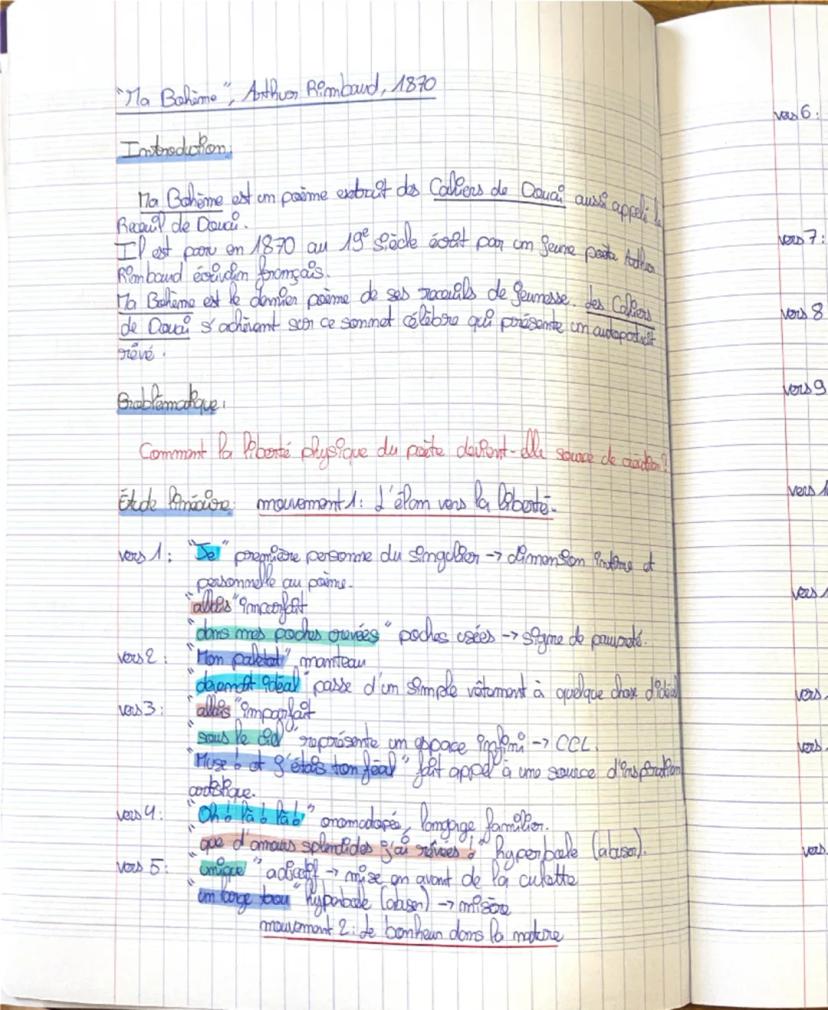 "Ma Bohème", Arthur Rimbaud, 1870
Introduction:
Ma Bohème est un poème extrait des Cahiers de Douai aussi appelé le
Recueil de Douai.
Il est paru en 1870 au 19e siècle écrit par un jeune poète Arthur
Rimbaud écrivain français.
Ma Bohème est le dernier poème de ses recueils de jeunesse. des Cahiers
de Douai s'achèvent sur ce sonnet célèbre qui présente un autoportrait
rêvé.
Problématique:
Comment la liberté physique du poète devient-elle source de création?
Étude linéaire: mouvement 1: L'élan vers la liberté.
vers 1: "Je" première personne du singulier → dimension intime et
personnelle au poème.
"allais" imparfait
"dans mes poches crevées" poches usées → signe de pauvreté.
vers 2: "Mon paletot" manteau
"devenait idéal" passe d'un simple vêtement à quelque chose d'idéal
vers 3: "allais" imparfait
"sous le ciel" représente un espace infini → CCL.
"Muse! et j'étais ton féal" fait appel à une source d'inspiration
artistique.
vers 4: "Oh! là! là!" onomatopée, langage familier.
"que d'amours splendides j'ai rêvées!" hyperbole (abuser).
vers 5: "unique" adjectif → mise en avant de la culotte
"un large trou" hyperbole (abuser) → misère
mouvement 2: Le bonheur dans la nature
vers 6:
vers 7:
vers 8
vers 9
vers 1
vers 1
vers
vers
vers